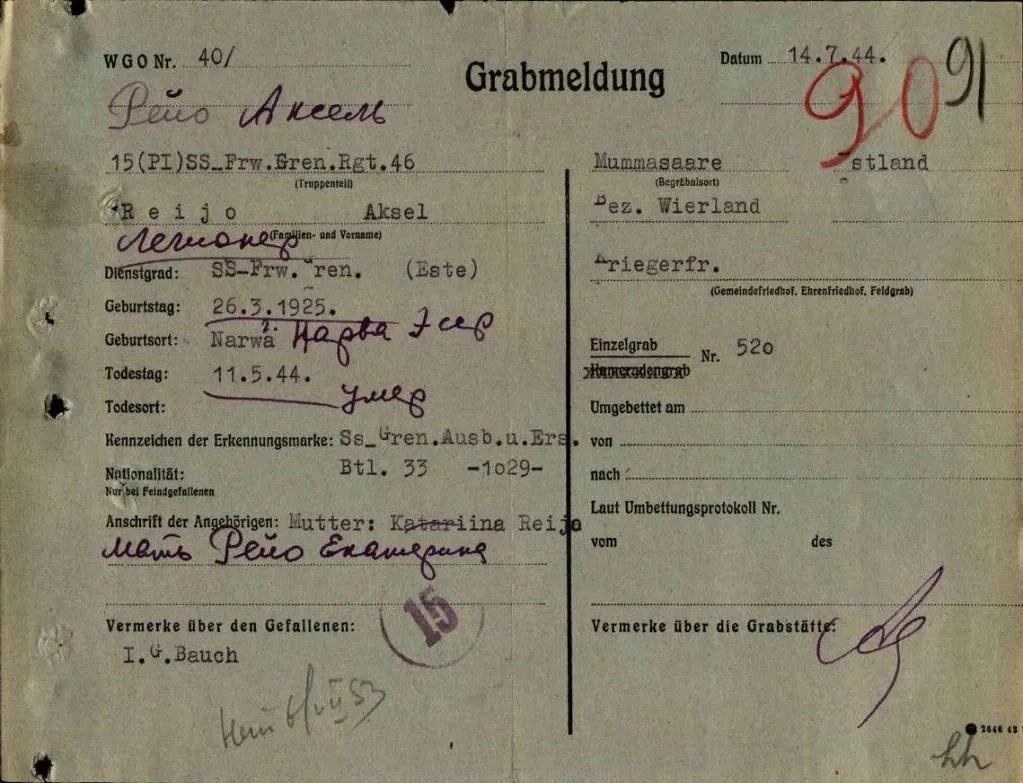 WGO Nr. 40/
Grabmeldung
Datum 14.7.44.
90
91
Рейо Аксель
15(PI)SS_Frw.Gren.Rgt.46
(Truppenteil)
Reijo Aksel
(Familien- und Vorname)
легионер
Dienstgrad: SS-Frw.Gren. (Este)
Geburtstag: 26.3.1925.
Geburtsort: Narwa Нарва Эсср
Todestag: 11.5.44.
Todesort: умер
Kennzeichen der Erkennungsmarke: Ss_Gren.Ausb.u.Ers.
Btl. 33 -1029-
Nationalität:
Nur bei Feindgefallenen
Anschrift der Angehörigen: Mutter: Katariina Reijo
Мать Рейо Екатерина
Vermerke über den Gefallenen:
I.G.Bauch
15
Mummasaare Estland
(Begräbnisort)
Bez. Wierland
Kriegerfr.
(Gemeindefriedhof, Ehrenfriedhof, Feldgrab)
Einzelgrab
Kameradengrab
Nr. 520
Umgebettet am
von
nach
Laut Umbettungsprotokoll Nr.
vom des
Vermerke über die Grabstätte:
2646 43